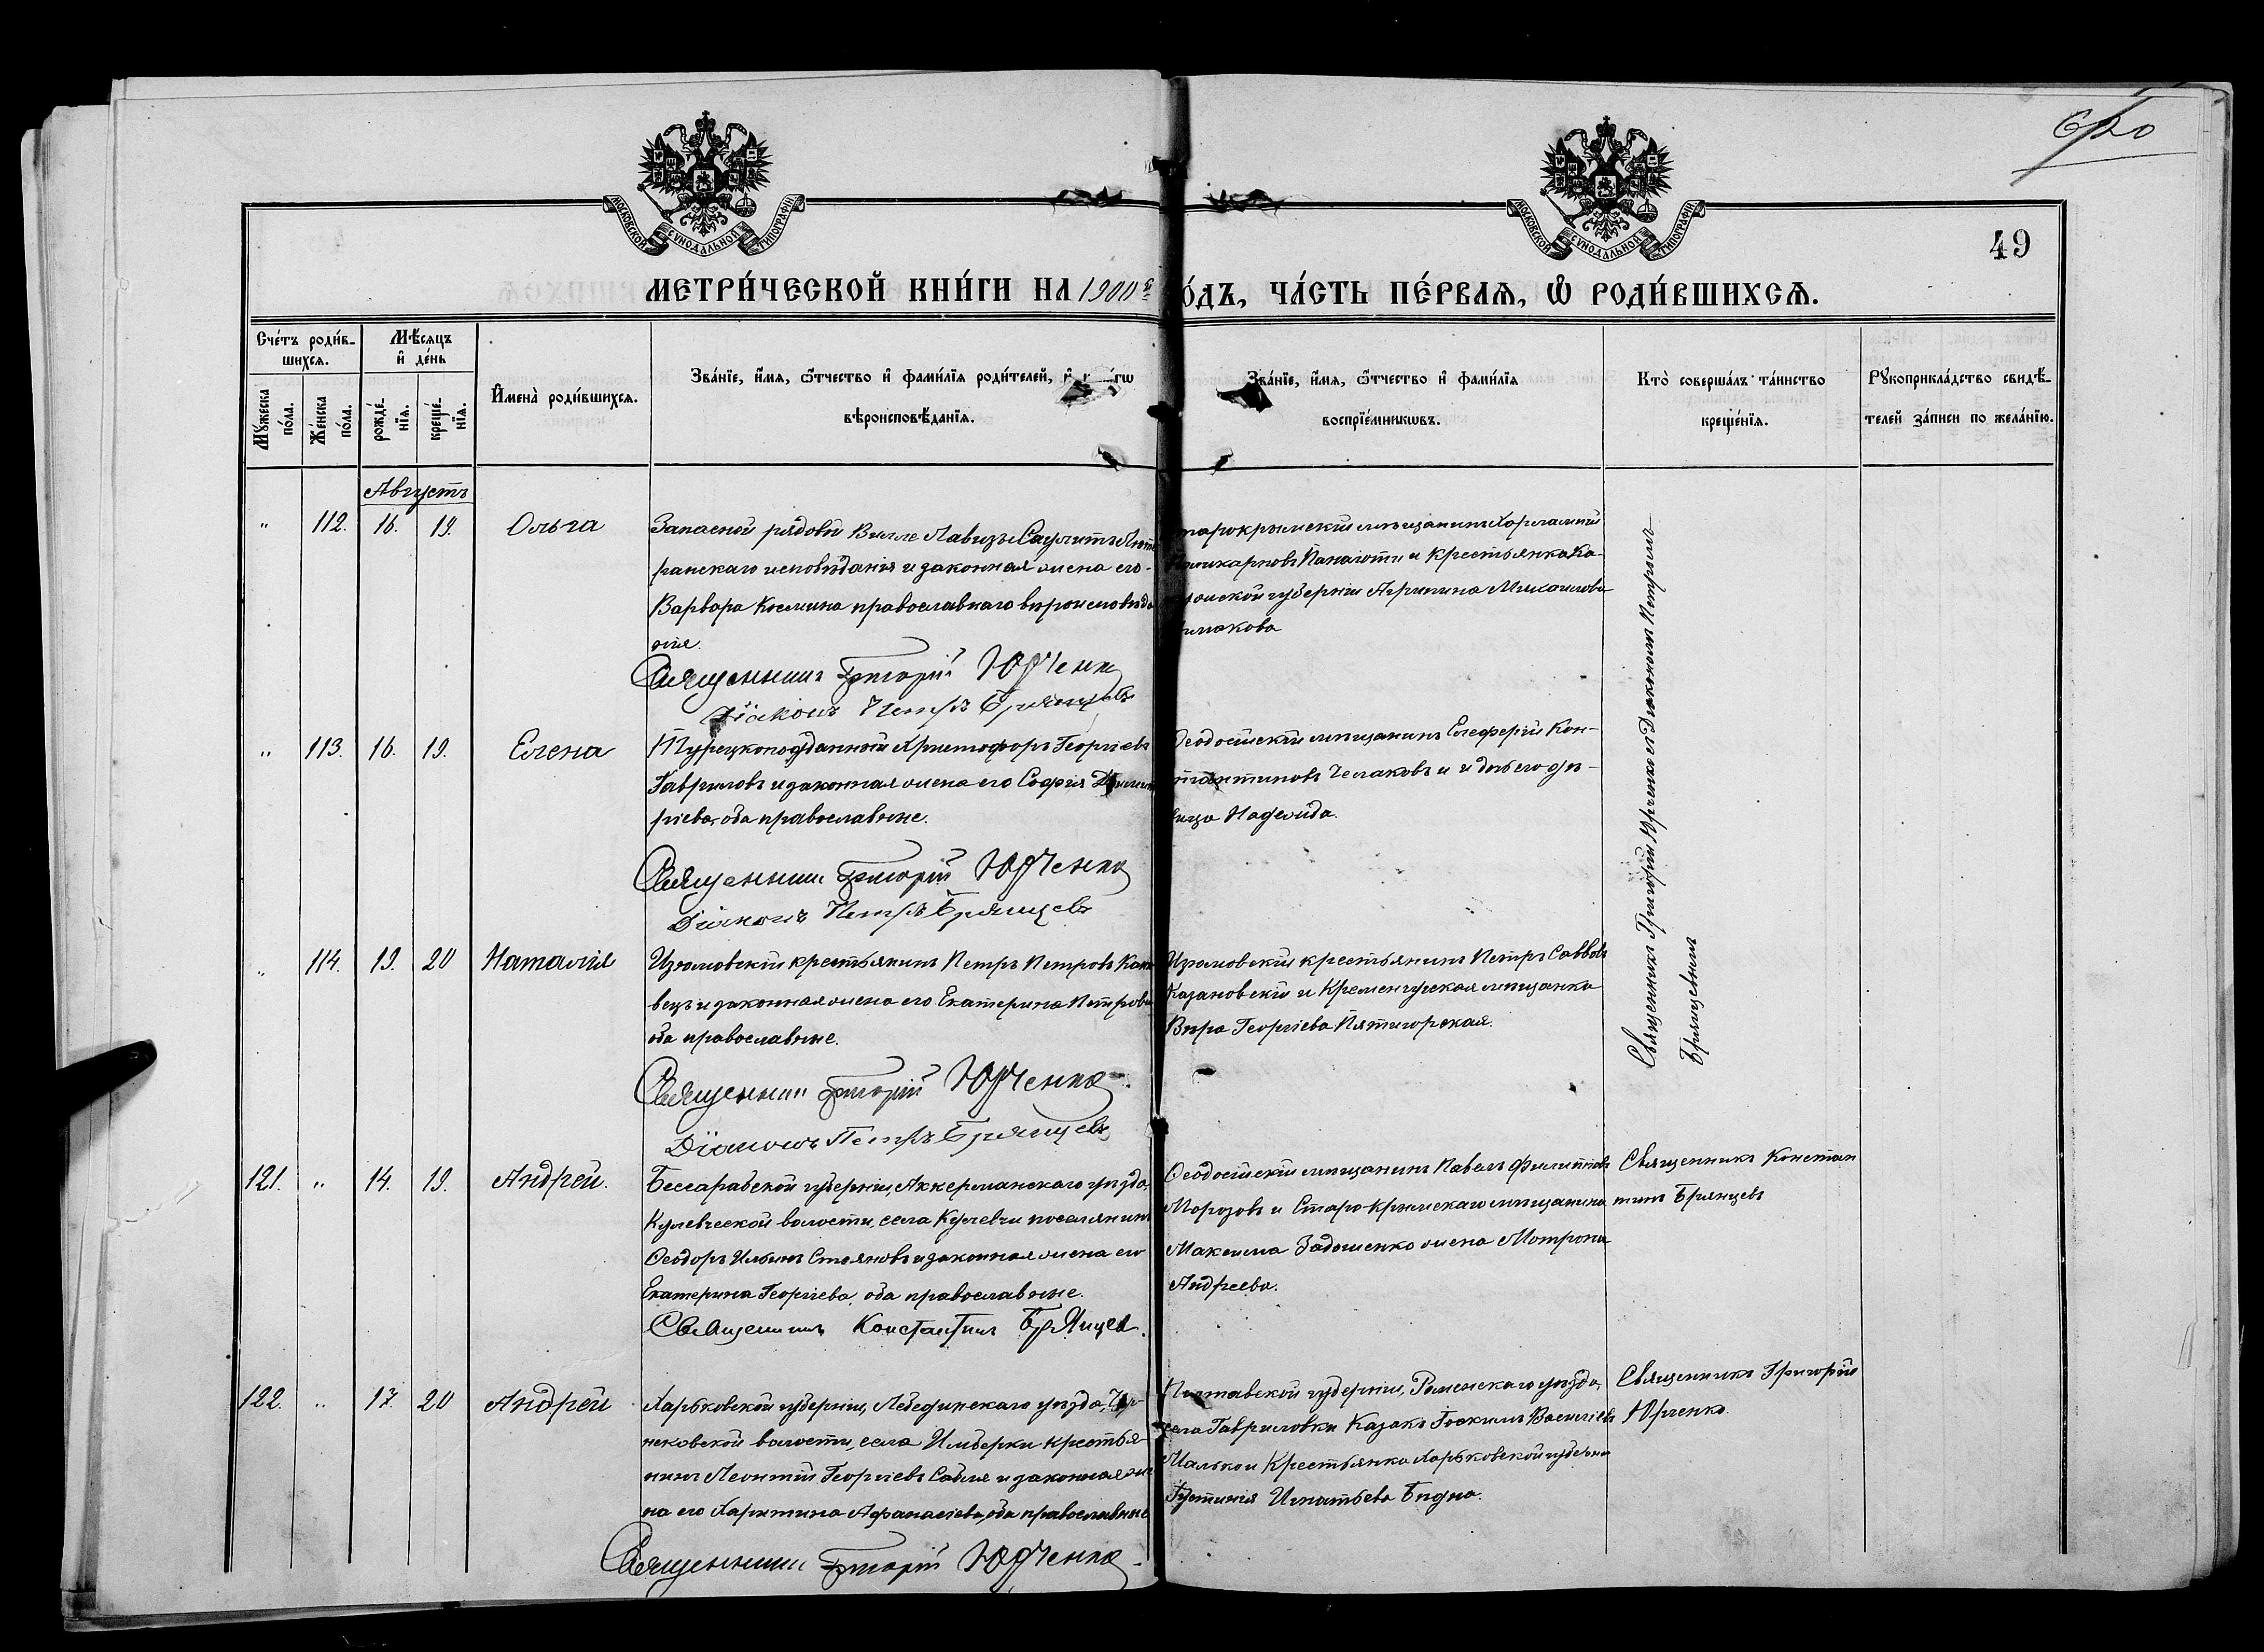 49
МОСКОВСКОЙ СУНОДАЛЬНОЙ ТИПОГРАФІИ
МОСКОВСКОЙ СУНОДАЛЬНОЙ ТИПОГРАФІИ
МЕТРИ́ЧЕСКОЙ КНИ́ГИ НА 1900 г. О́ДЪ, ЧА́СТЬ ПЕ́РВАѦ, Ѽ РОДИ́ВШИХСѦ.
Сче́тъ роди́в-
шихсѧ.
Мѣ́сѧцъ
и҆ де́нь
Мꙋ́жеска по́ла.
Же́нска по́ла.
рожде́-
нїѧ.
креще́-
нїѧ.
И҆мена̀ роди́вшихсѧ.
Зва́нїе, и҆́мѧ, ѻ҆́тчество и҆ фами́лїѧ роди́телей,
вѣроисповѣ́данїѧ.
Зва́нїе, и҆́мѧ, ѻ҆́тчество и҆ фами́лїѧ
воспрїе́мникѡвъ.
Кто̀ соверша́лъ та́инство
креще́нїѧ.
Рꙋкоприкла́дство свидѣ́-
телей за́писи по жела́нїю.
Августъ
" 112. 16. 19. Ольга
Запасной рядовой Вилле Давизъ Саулитъ Люте
ранскаго исповѣданія и законная жена его
Варвара Космина православнаго вѣроисповѣда
нія.
Священникъ Григорій Юрченко
Діаконъ Петръ Брянцевъ
тарокрымскій мѣщанинъ Харлампій
ликарповъ Панаіоти и крестьянка Ка-
губерніи Агрипина Михаилова
макова
Священникъ Григорій Юрченко съ Діакономъ Петромъ
Брянцевымъ
" 113. 16. 19. Елена
Турецкоподданный Христофоръ Георгіевъ
Гавриловъ и законная жена его Софія Димит
ріева, оба православные.
Священникъ Григорій Юрченко
Діаконъ Петръ Брянцевъ
Ѳеодосійскій мѣщанинъ Елеферій Кон-
стантиновъ Челаковъ и
вица Надежда.
" 114. 19. 20 Наталія
Изюмовскій крестьянинъ Петръ Петровъ
вецъ и законная жена его Екатерина Петрова
оба православные.
Священникъ Григорій Юрченко.
Діаконъ Петръ Брянцевъ
Изюмовскій крестьянинъ Петръ Саввовъ
Казановскій и Кременчугская мѣщанка
Вѣра Георгіева Пятигорская.
121. " 14. 19. Андрей.
Бессарабской губерніи, Аккерманскаго уѣзда,
Кулевчской волости, села Кулевчи поселянинъ
Ѳеодоръ Ильинъ Стояновъ и законная жена его
Екатерина Георгіева, оба православные.
Священникъ Константинъ Брянцевъ.
Ѳеодосійскій мѣщанинъ Павелъ Филипповъ
Морозовъ и Старо-Крымскаго мѣщанина
Максима Задоженко жена Матрона
Андреева.
Священникъ Констан
тинъ Брянцевъ
122. " 17. 20 Андрей
Харьковской губерніи, Лебединскаго уѣзда,
нековской волости, села Имберки крестья-
нинъ Леонтій Георгіевъ Сабля и законная же
на его Харитина Афанасіева, оба православные
Священникъ Григорій Юрченко
Полтавской губерніи, Роменскаго уѣзда,
села Гавриловки Казакъ Іоакимъ Васильевъ
Малько и Крестьянка Харьковской губерніи
Іустинія Игнатьева Бѣдна.
Священникъ Григорій
Юрченко.